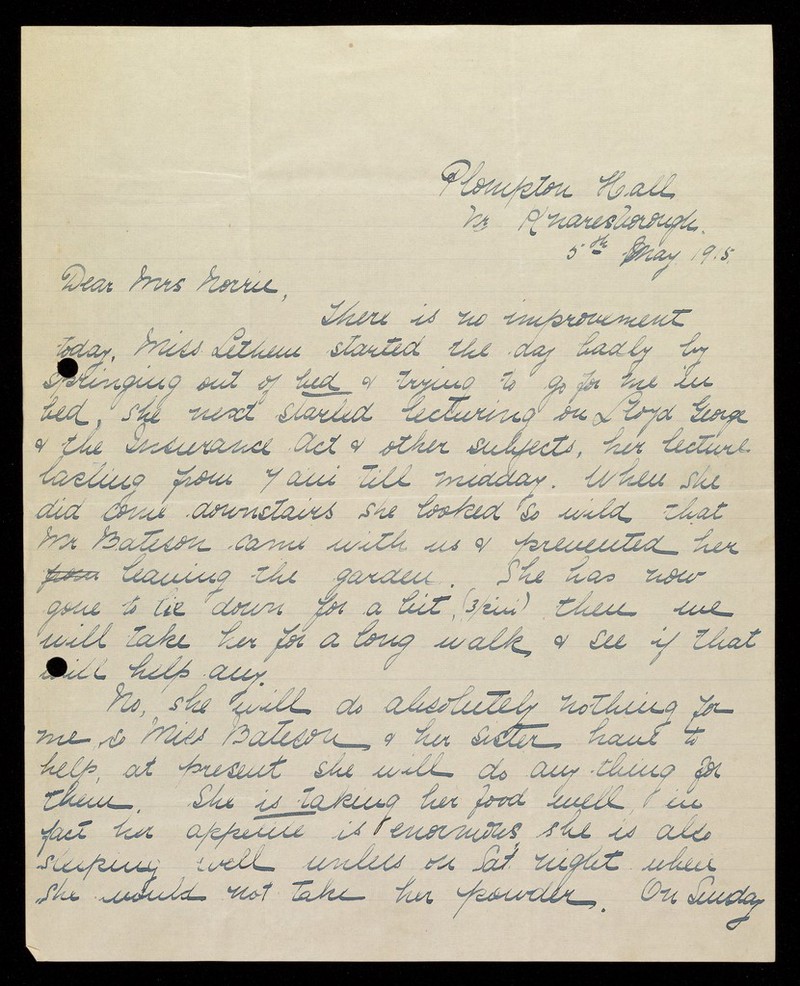 Plompton Hall
Nr Knaresborough.
5th May 1915
Dear Mrs Norrie,
There is no improvement
today. Miss Lethem started the day badly by
springing out of bed & trying to go for me in
bed, she next started lecturing on Lloyd George
& the Insurance Act & other subjects, her lecture
lasting from 7 am till midday. When she
did come downstairs she looked so wild that
Mr Bateson came with us & prevented her
from leaving the garden. She has now
gone to lie down for a bit, (3 pm) then we
will take her for a long walk, & see if that
will help any.
No, she will do absolutely nothing for
me, so Miss Bateson & her sister have to
help, at present she will do any thing for
them. She is taking her food well, in
fact her appetite is "enormous" she is also
sleeping well unless on Sat night when
she would not take her powder. On Sunday